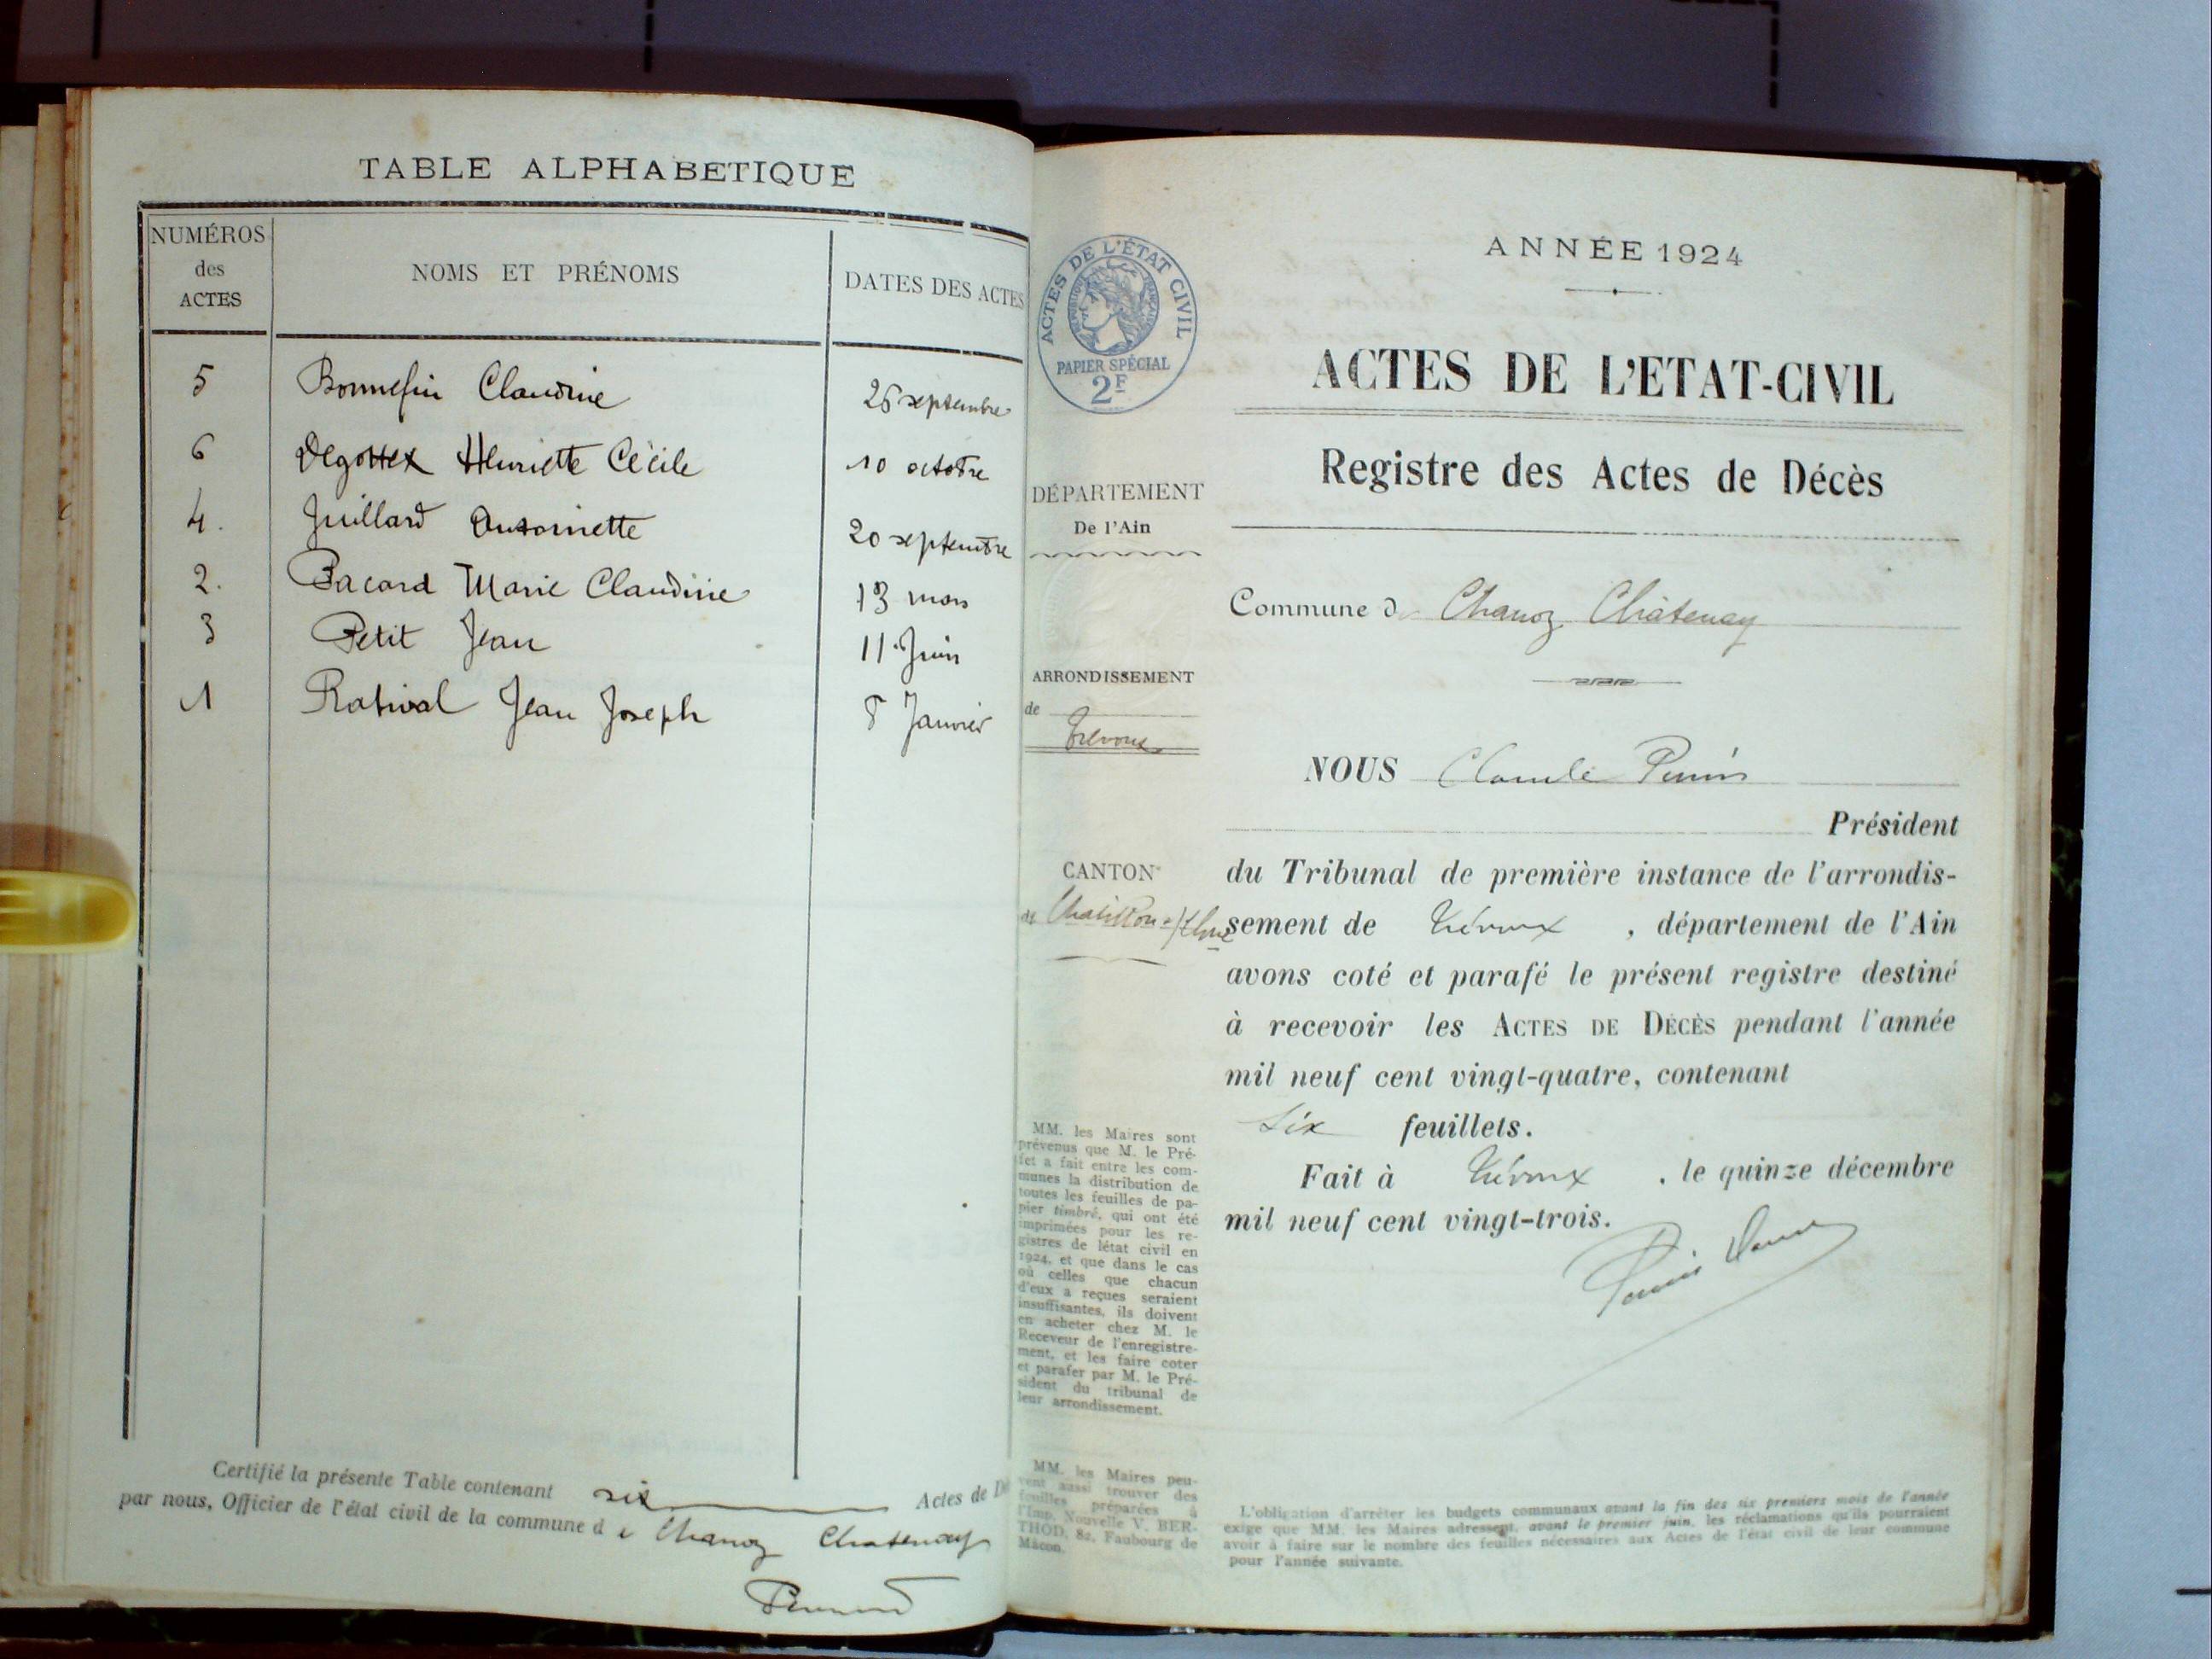 TABLE ALPHABETIQUE
NUMÉROS
des
ACTES
NOMS ET PRÉNOMS
DATES DES ACTES
5 Bonnefin Claudine 26 septembre
6 Degottex Henriette Cécile 10 octobre
4. Juillard Antoinette 20 septembre
2. Pacard Marie Claudine 13 mars
3 Petit Jean 11 Juin
1 Rativat Jean Joseph 8 Janvier
Certifié la présente Table contenant six Actes de
par nous, Officier de l'état civil de la commune de Chanoz Chatenay
ACTES DE L'ÉTAT CIVIL
PAPIER SPÉCIAL
2F
DÉPARTEMENT
De l'Ain
ARRONDISSEMENT
de
Trévoux
CANTON
de Chatillon s/ Chne
MM. les Maires sont
prévenus que M. le Pré-
fet a fait entre les com-
munes la distribution de
toutes les feuilles de pa-
pier timbré, qui ont été
imprimées pour les re-
gistres de létat civil en
1924, et que dans le cas
où celles que chacun
d'eux a reçues seraient
insuffisantes, ils doivent
en acheter chez M. le
Receveur de l'enregistre-
ment, et les faire coter
et parafer par M. le Pré-
sident du tribunal de
leur arrondissement.
MM. les Maires peu-
vent aussi trouver des
feuilles préparées à
l'Imp. Nouvelle V. BER-
THOD, 82, Faubourg de
Mâcon.
ANNÉE 1924
ACTES DE L'ETAT-CIVIL
Registre des Actes de Décès
Commune de Chanoz Châtenay
NOUS Claude Perrin
Président
du Tribunal de première instance de l'arrondis-
sement de Trévoux, département de l'Ain
avons coté et parafé le présent registre destiné
à recevoir les ACTES DE DÉCÈS pendant l'année
mil neuf cent vingt-quatre, contenant
six feuillets.
Fait à Trévoux, le quinze décembre
mil neuf cent vingt-trois.
L'obligation d'arrêter les budgets communaux avant la fin des six premiers mois de l'année
exige que MM. les Maires adressent, avant le premier juin, les réclamations qu'ils pourraient
avoir à faire sur le nombre des feuilles nécessaires aux Actes de l'état civil de leur commune
pour l'année suivante.